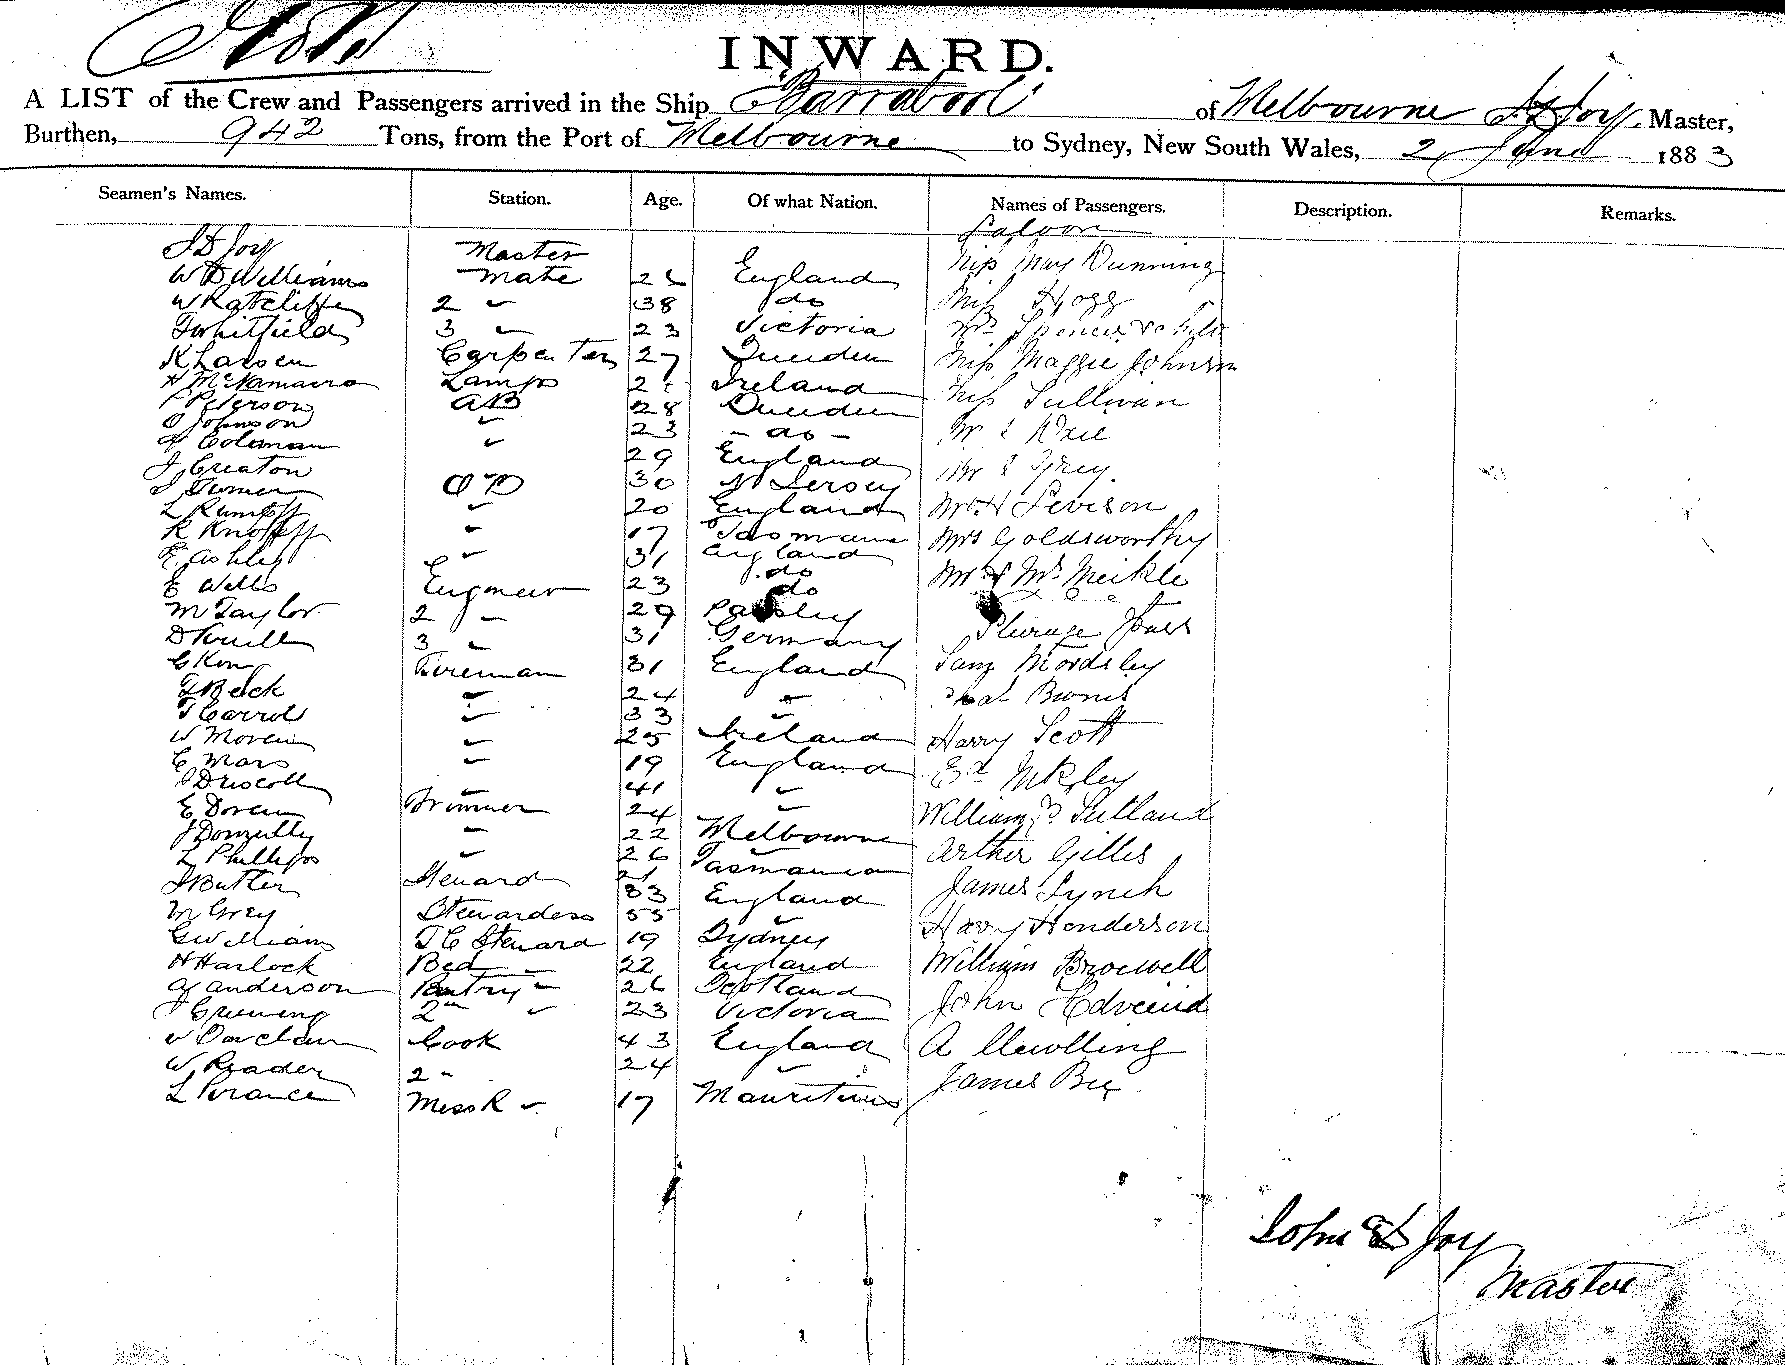 INWARD.
A LIST of the Crew and Passengers arrived in the Ship "Barrabool" of Melbourne J D Joy, Master,
Burthen, 942 Tons, from the Port of Melbourne to Sydney, New South Wales, 2 June 1883
Seamen's Names. Station. Age. Of what Nation. Names of Passengers. Description. Remarks.
Saloon
J D Joy Master Miss Mary Dunning
W D Williams Mate England
W Ratcliffe 2 " 38 do Miss Hogg
T Whitfield 3 " 23 Victoria Mrs Spencer & Child
K Larsen Carpenter 27 Sweeden Miss Maggie Johnson
H McNamara Lamps Ireland Miss Sullivan
P Peterson AB 28 Sweeden
O Johnson " 23 - do - Mr
Coleman " 29 England Mr Grey
J Creaton 30 N Jersey
J Turner OD 20 England Mr H Levison
L Rumpff " 17 Tasmania Mrs Goldsworthy
R Knopff " 31 England
E Ashley " 23 do Mr & Mrs Meikle
E Wells Engineer 29 do
M Taylor 2 " 31 Paisley Steerage
D Knill 3 " 31 Germany Mordsley
C King Fireman 24 England Burns
J Beck " 33 "
T Carrol " 25 " Harry Scott
W Moren " 19 Ireland
C Mars " 41 England
J Driscoll " 24 " William Sutland
E Doren Trimmer 22 "
J Donnelly " 26 Melbourne Arther Gilles
L Phillips " 21 Tasmania James Lynch
J Butler Steward 33 England
M Grey Stewardess 55 " Harry Henderson
G Williams T C Steward 19 Sydney
H Harlock Bed " 22 England William Brocwell
A Anderson Pantry " 26 Scotland
J Greening 2nd " 23 Victoria John
Cook 43 England A
W Reader 2 " 24 " James
L Mess R " 17 Mauritius
John E D Joy
Master